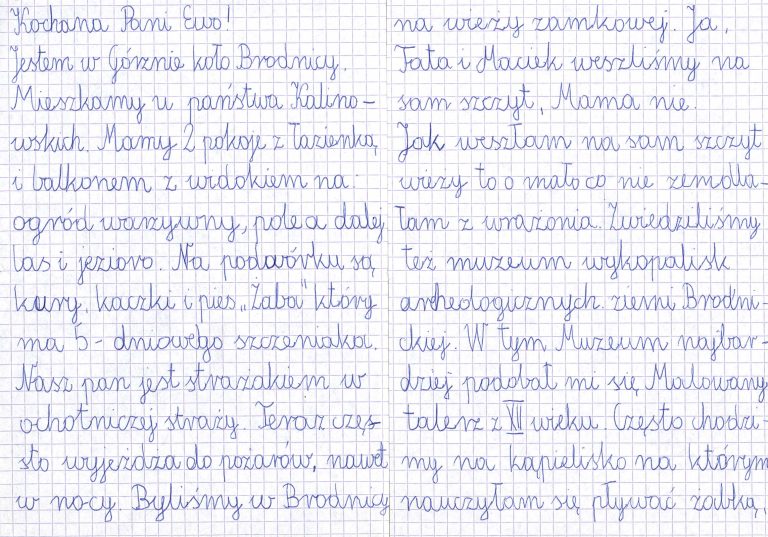 Kochana Pani Ewo!
Jestem w Górznie koło Brodnicy.
Mieszkamy u państwa Kalino-
wskich. Mamy 2 pokoje z łazienką
i balkonem z widokiem na
ogród warzywny, pole a dalej
las i jezioro. Na podwórku są
kury, kaczki i pies „Żaba" który
ma 5-dniowego szczeniaka.
Nasz pan jest strażakiem w
ochotniczej straży. Teraz częs-
sto wyjeżdża do pożarów, nawet
w nocy. Byliśmy w Brodnicy
na wieży zamkowej. Ja,
Tata i Maciek weszliśmy na
sam szczyt, Mama nie.
Jak weszłam na sam szczyt
wieży to o mało co nie zemdla-
łam z wrażenia. Zwiedziliśmy
też muzeum wykopalisk
archeologicznych ziemi Brodni-
ckiej. W tym Muzeum najbar-
dziej podobał mi się Malowany
talerz z XII wieku. Często chodzi-
my na kąpielisko na którym
nauczyłam się pływać żabką.